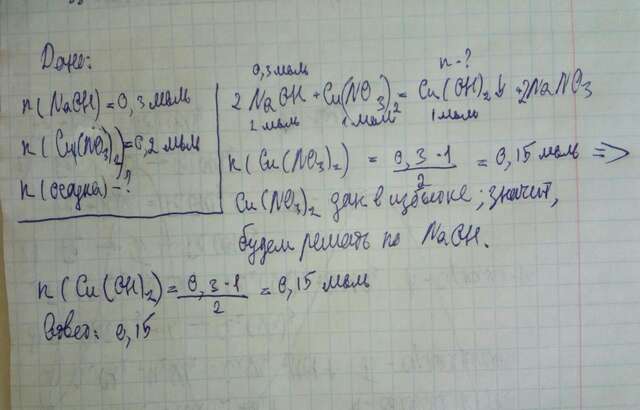 Дано:
n(NaOH)=0,3 моль
n(Cu(NO₃)₂)=0,2 моль
n(осадка)-?
0,3 моль n-?
2NaOH+Cu(NO₃)₂=Cu(OH)₂↓+2NaNO₃
2 моль 1 моль 1 моль
n(Cu(NO₃)₂) = 0,3·1/2 = 0,15 моль =>
Cu(NO₃)₂ дан в избытке; значит,
будем решать по NaOH.
n(Cu(OH)₂)=0,3·1/2=0,15 моль
Ответ: 0,15